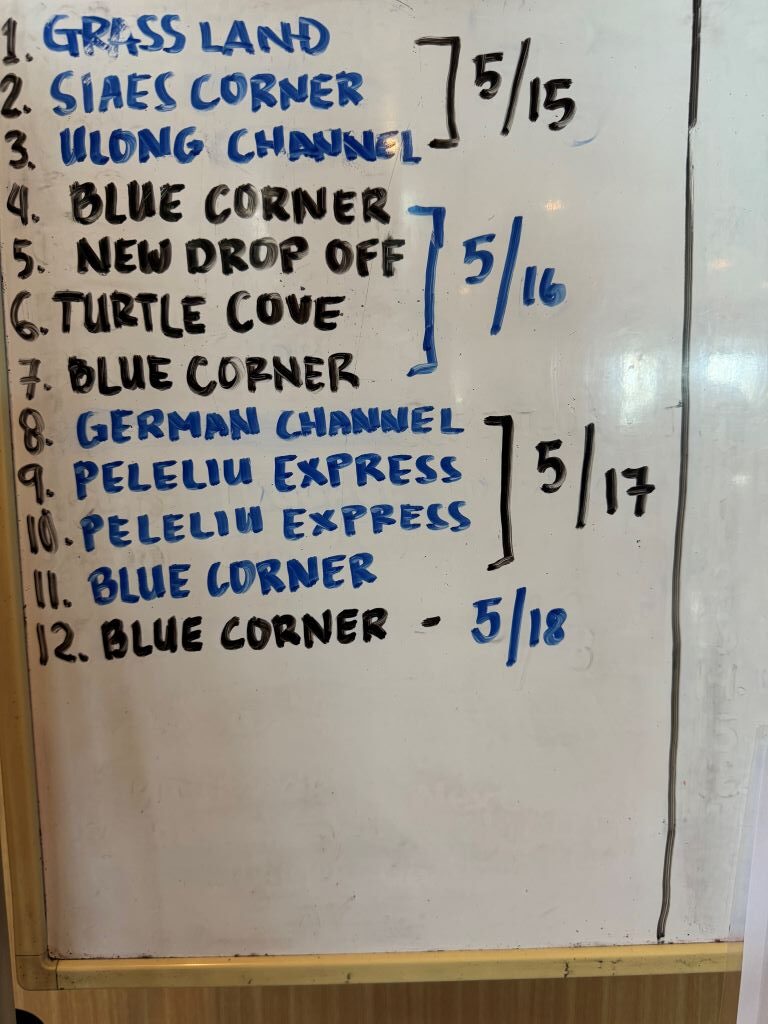 1. GRASS LAND
2. SIAES CORNER
3. ULONG CHANNEL
5/15
4. BLUE CORNER
5. NEW DROP OFF
6. TURTLE COVE
7. BLUE CORNER
5/16
8. GERMAN CHANNEL
9. PELELIU EXPRESS
10. PELELIU EXPRESS
11. BLUE CORNER
5/17
12. BLUE CORNER - 5/18